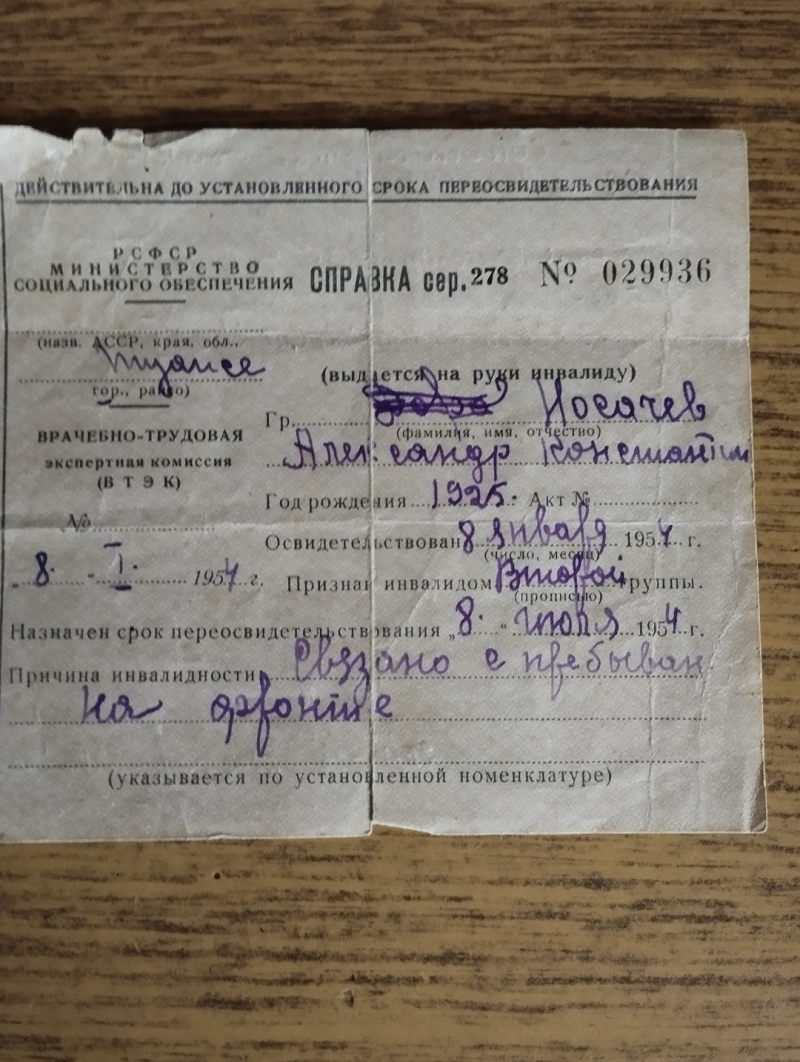 ДЕЙСТВИТЕЛЬНА ДО УСТАНОВЛЕННОГО СРОКА ПЕРЕОСВИДЕТЕЛЬСТВОВАНИЯ
РСФСР
МИНИСТЕРСТВО
СОЦИАЛЬНОГО ОБЕСПЕЧЕНИЯ
СПРАВКА сер. 278 № 029936
(назв. АССР, края, обл.,
Туапсе
гор., район)
(выдается на руки инвалиду)
ВРАЧЕБНО-ТРУДОВАЯ
экспертная комиссия
(ВТЭК)
№
"8" I 1954 г.
Гр. Носачев
(фамилия, имя, отчество)
Александр Константин
Год рождения 1925. Акт №
Освидетельствован 8 января 1954 г.
(число, месяц)
Признан инвалидом Второй группы.
(прописью)
Назначен срок переосвидетельствования "8" июля 1954 г.
Причина инвалидности Связано с пребыван
на фронте
(указывается по установленной номенклатуре)